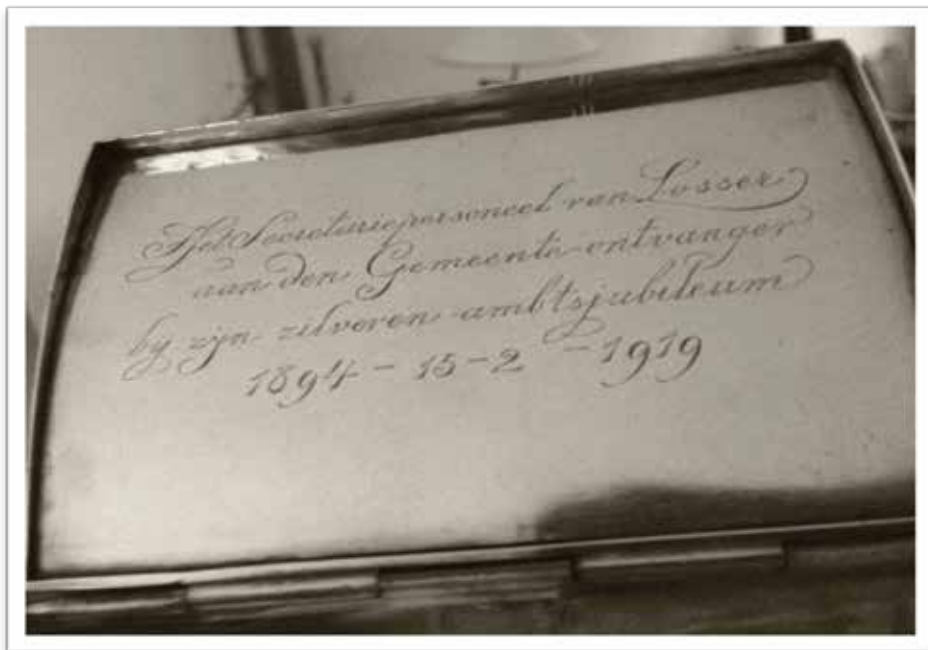 Het Secretariepersoneel van Losser
aan den Gemeente-ontvanger
by zyn zilveren ambtsjubileum
1894 - 15-2 - 1919